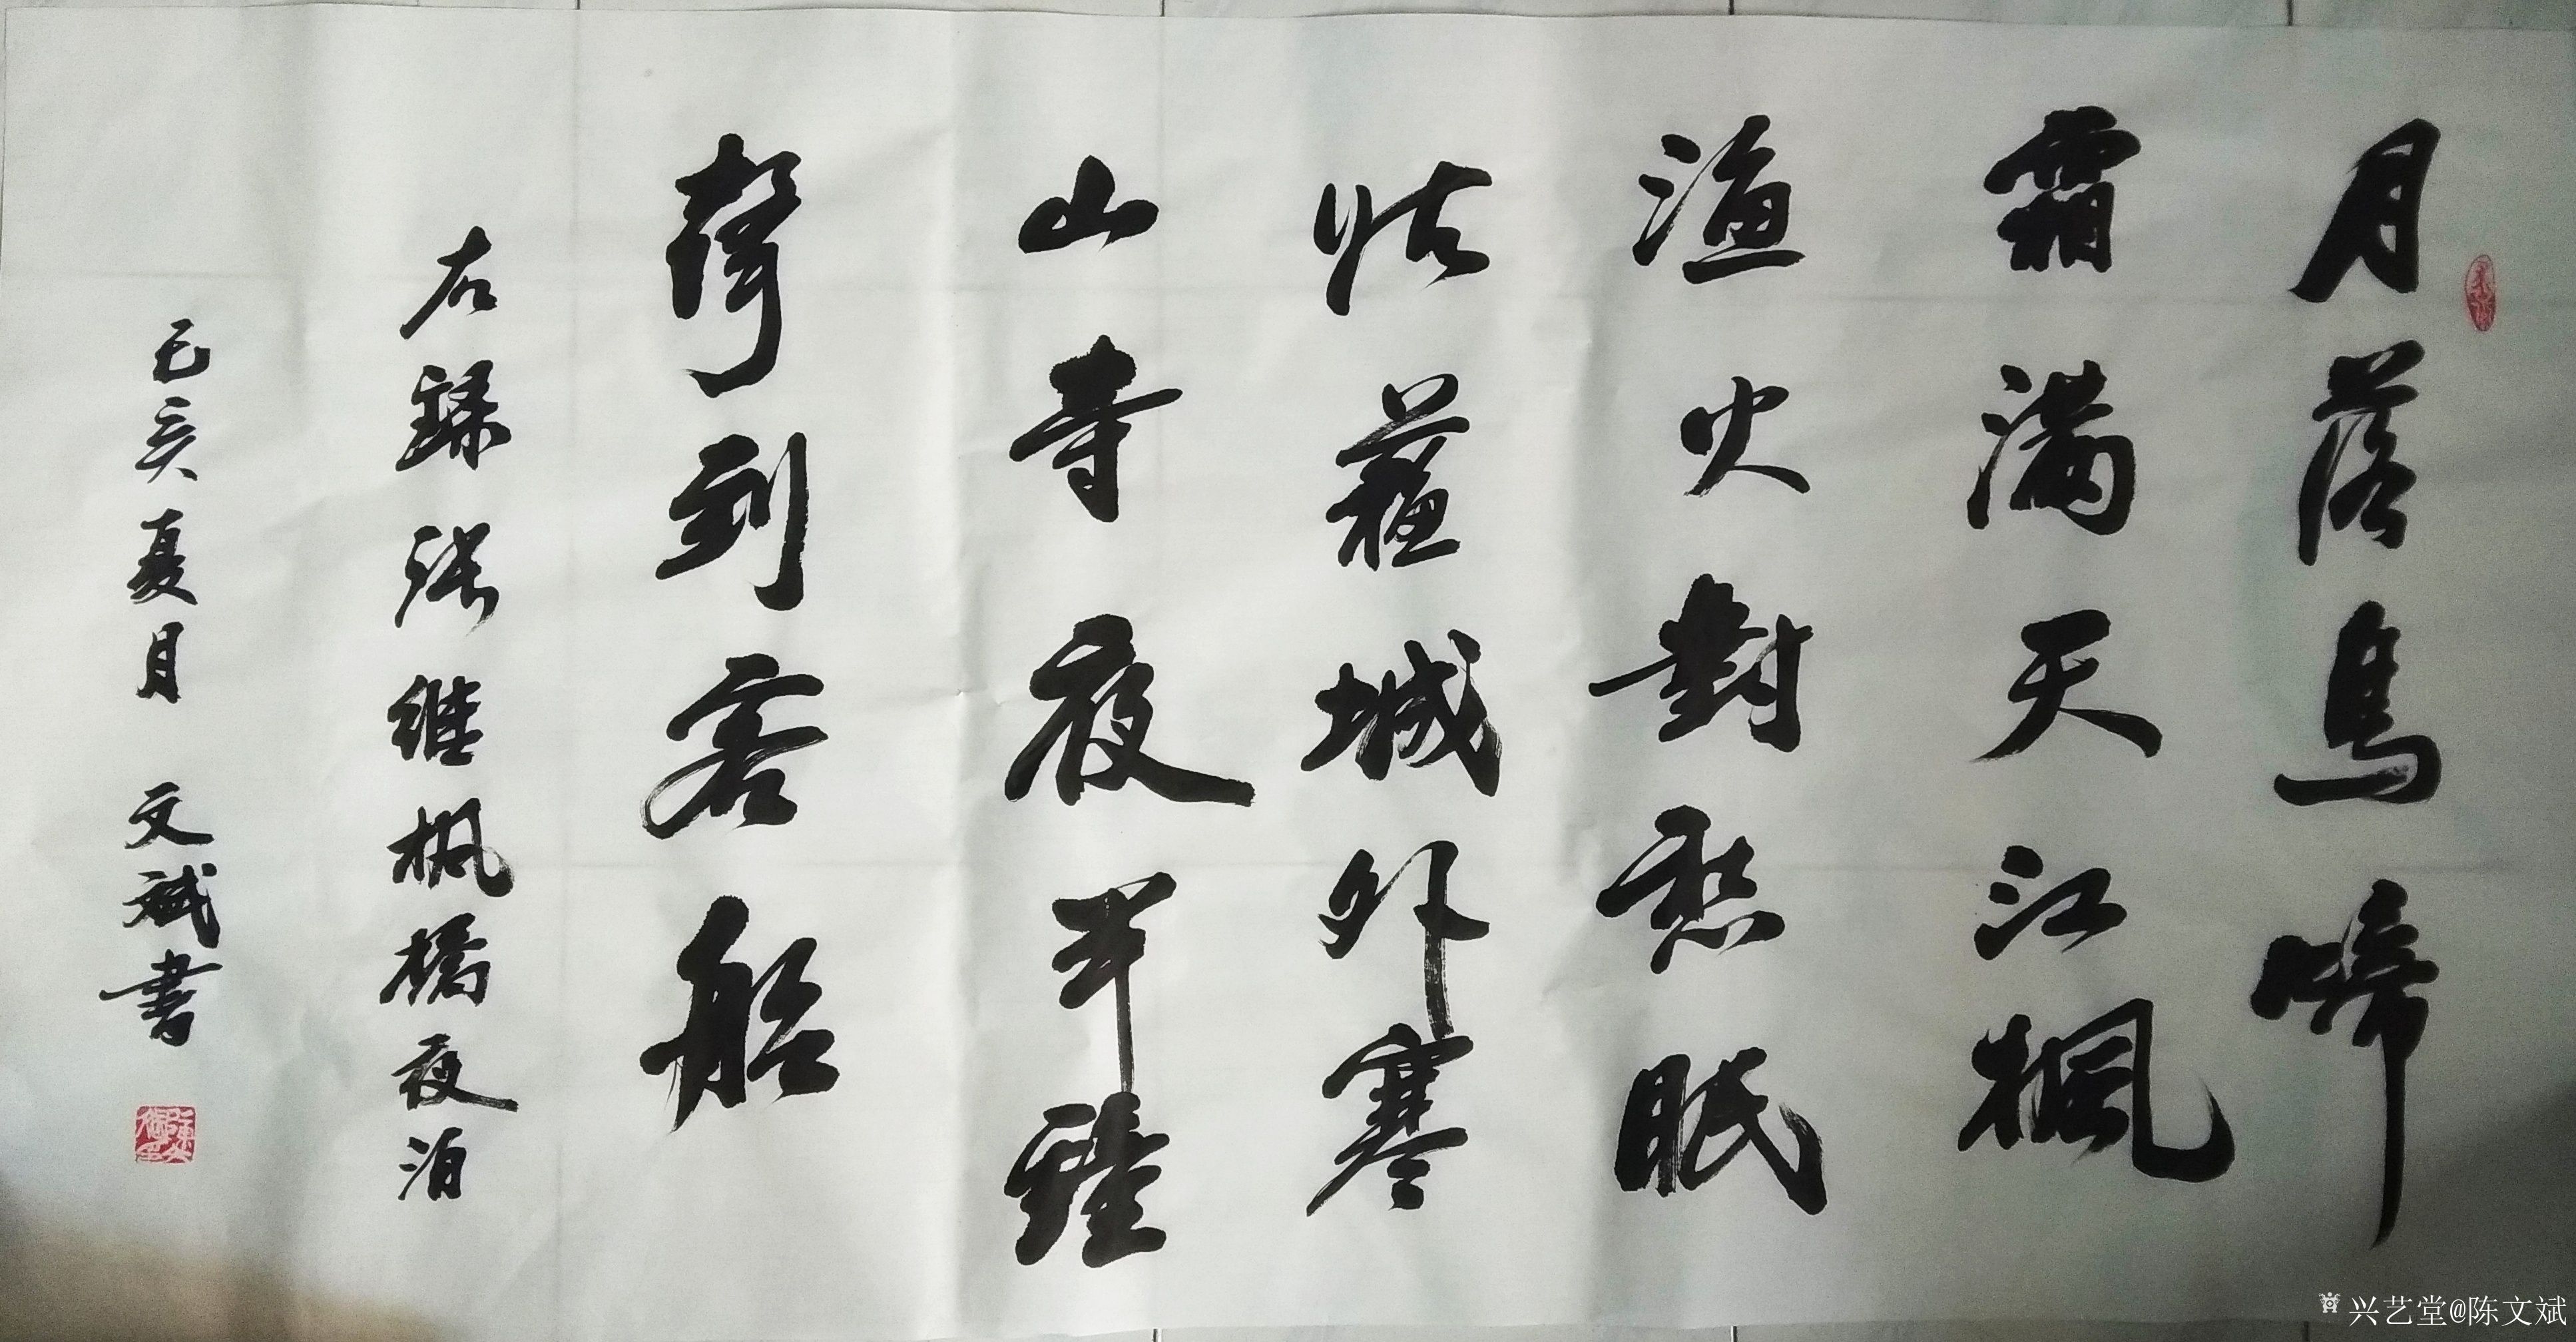 月落烏啼
霜滿天江楓
漁火對愁眠
姑蘇城外寒
山寺夜半鐘
聲到客船
右録張继楓橋夜泊
己亥夏月 文斌書
兴艺堂@陈文斌